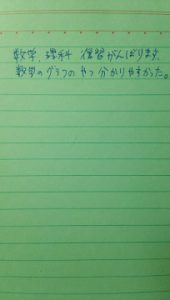 数学、理科 復習がんばります。
数学のグラフのやつ分かりやすかった。